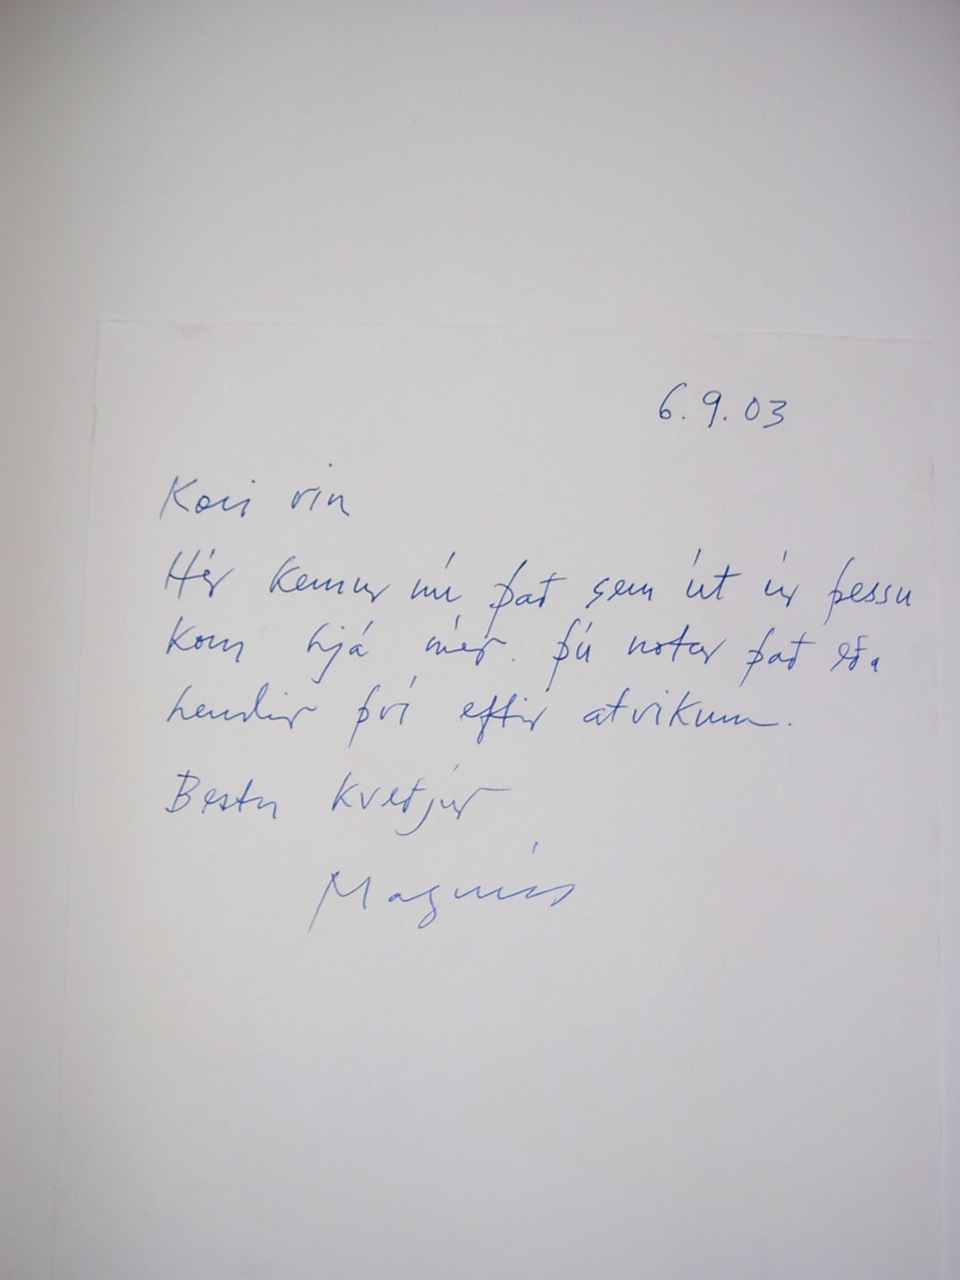 6.9.03
Kæri vin
Hér kemur nú það sem út úr þessu
kom hjá mér. Þú notar það eða
hendir því eftir atvikum.
Bestu kveðjur
Magnús